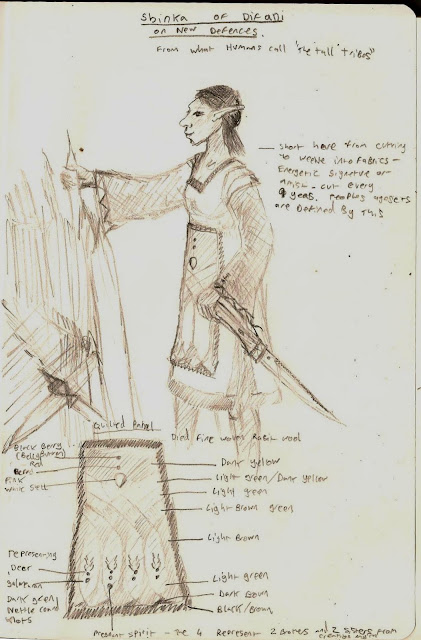 Shinka of Difani
on New Defences.
From what Humans call "the tall tribes"
Short have from cutting
to weave into Fabrics -
Energetic signature of
Artist - cut every
9 yeas. Peoples
are Defined By this
Quilted Panel
Died Fine woven Rabit wool
Black Berry
Red
Pink
white Sell
Dark yellow
Light green/Dark yellow
Light green
Light Brown green
Light Brown
Representing
Deer
Dark green
Nettle
Knots
Light green
Dark Bown
Black/Brown
Present spirit - the 4 Represent 2 and 2 sisters from
creation